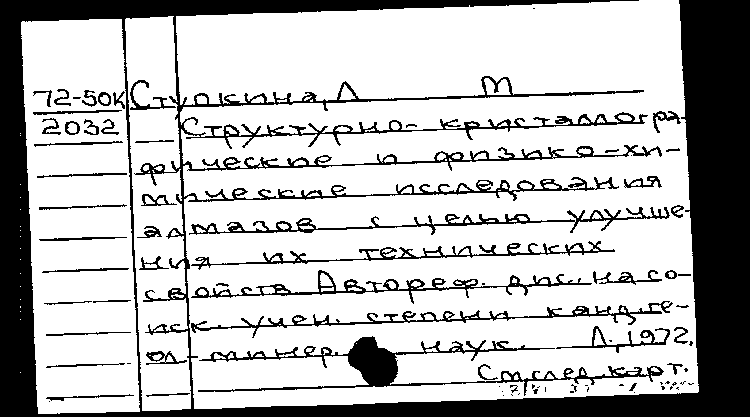 72-50К Ступкина, Л М
2032 Структурно-кристаллогра-
фические и физико-хи-
мические исследования
алмазов с целью улучше-
ния их технических
свойств. Автореф. дис. на со-
иск. учен. степени канд. ге-
ол.-минер. наук. Л., 1972.
См. след. карт.